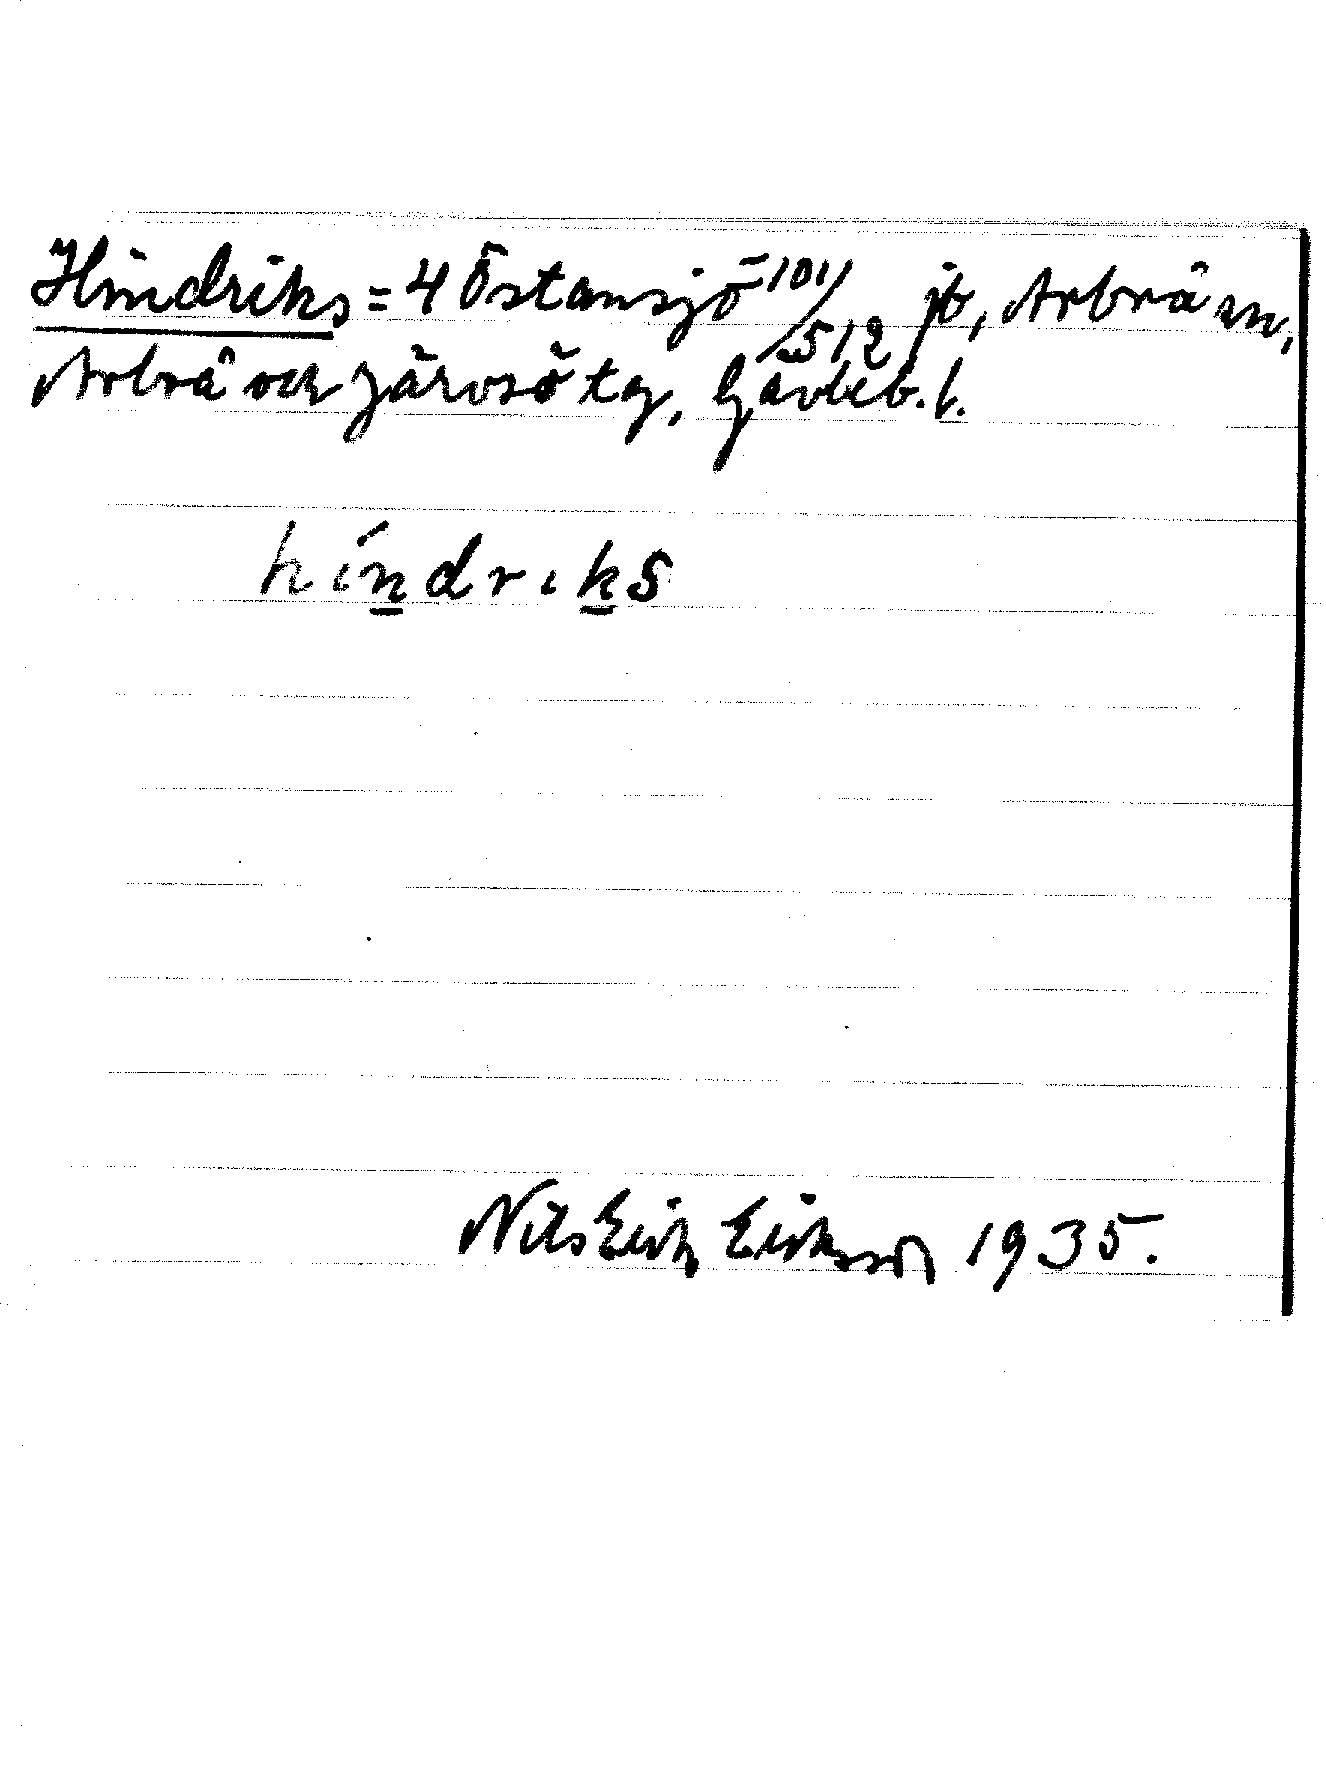 Hindriks = 4 Östansjö 101/512 jb, Arbrå sn,
Arbrå och Järvsö tg, Gävleb. l.
híndrıks
Nils Erik Eriksson 1935.